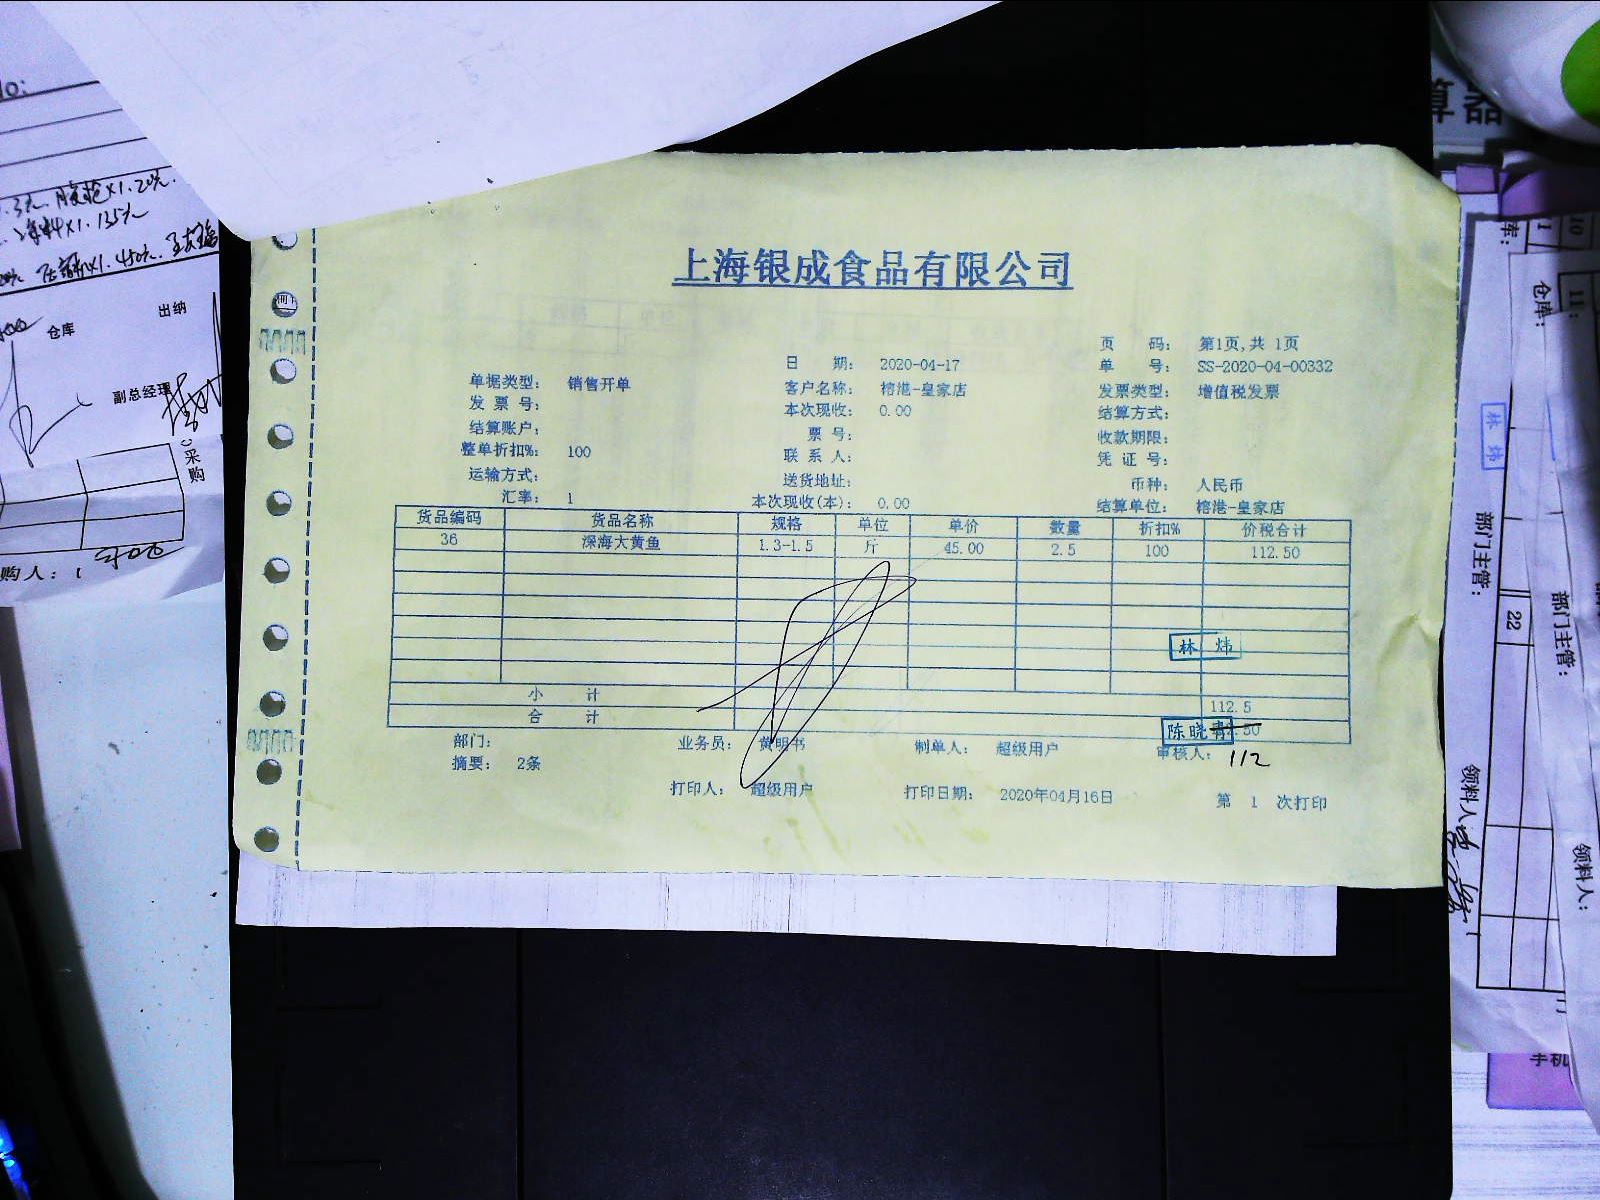 上海银成食品有限公司
页 码: 第1页,共 1页
日 期: 2020-04-17 单 号: SS-2020-04-00332
单据类型: 销售开单 客户名称: 榕港-皇家店 发票类型: 增值税发票
发 票 号: 本次现收: 0.00 结算方式:
结算账户: 票 号: 收款期限:
整单折扣%: 100 联 系 人: 凭 证 号:
运输方式: 送货地址: 币种: 人民币
汇率: 1 本次现收(本): 0.00 结算单位: 榕港-皇家店
货品编码 货品名称 规格 单位 单价 数量 折扣% 价税合计
36 深海大黄鱼 1.3-1.5 斤 45.00 2.5 100 112.50
林 炜
小 计 112.5
合 计
陈晓青
部门: 业务员: 黄明书 制单人: 超级用户 审核人: 112
摘要: 2条
打印人: 超级用户 打印日期: 2020年04月16日 第 1 次打印
仓库
出纳
副总经理
采购
购人:
算器
仓库:
部门主管:
部门主管:
22
领料人
领料人:
10
11
1
林 炜
手机